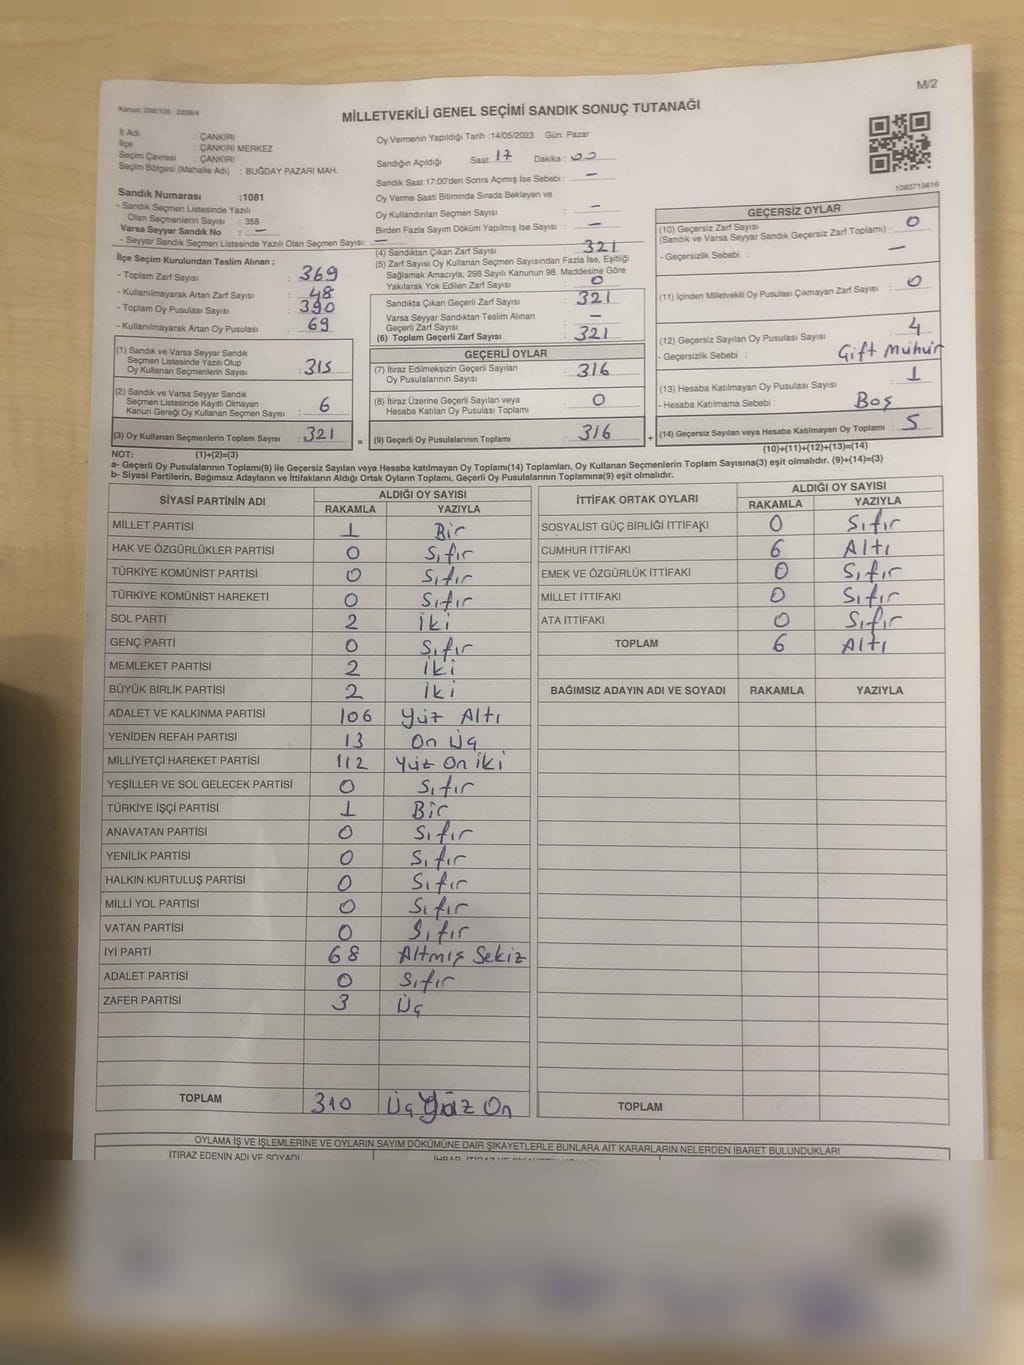 M/2
Kanun, 298/105 2839/4
MİLLETVEKİLİ GENEL SEÇİMİ SANDIK SONUÇ TUTANAĞI
İl Adı : ÇANKIRI
İlçe : ÇANKIRI MERKEZ
Seçim Çevresi : ÇANKIRI
Seçim Bölgesi (Mahalle Adı) : BUĞDAY PAZARI MAH.
Sandık Numarası :1081
- Sandık Seçmen Listesinde Yazılı
Olan Seçmenlerin Sayısı : 358
Varsa Seyyar Sandık No : —
- Seyyar Sandık Seçmen Listesinde Yazılı Olan Seçmen Sayısı: —
İlçe Seçim Kurulundan Teslim Alınan ;
- Toplam Zarf Sayısı : 369
- Kullanılmayarak Artan Zarf Sayısı : 48
- Toplam Oy Pusulası Sayısı : 390
- Kullanılmayarak Artan Oy Pusulası : 69
(1) Sandık ve Varsa Seyyar Sandık
Seçmen Listesinde Yazılı Olup
Oy Kullanan Seçmenlerin Sayısı : 315
(2) Sandık ve Varsa Seyyar Sandık
Seçmen Listesinde Kayıtlı Olmayan
Kanun Gereği Oy Kullanan Seçmen Sayısı : 6
(3) Oy Kullanan Seçmenlerin Toplam Sayısı : 321 =
Oy Vermenin Yapıldığı Tarih :14/05/2023 Gün: Pazar
Sandığın Açıldığı Saat: 17 Dakika : 00
Sandık Saat 17:00'den Sonra Açılmış İse Sebebi : —
Oy Verme Saati Bitiminde Sırada Bekleyen ve
Oy Kullandırılan Seçmen Sayısı : —
Birden Fazla Sayım Döküm Yapılmış İse Sayısı : —
(4) Sandıktan Çıkan Zarf Sayısı : 321
(5) Zarf Sayısı Oy Kullanan Seçmen Sayısından Fazla İse, Eşitliği
Sağlamak Amacıyla; 298 Sayılı Kanunun 98. Maddesine Göre
Yakılarak Yok Edilen Zarf Sayısı : 0
Sandıkta Çıkan Geçerli Zarf Sayısı : 321
Varsa Seyyar Sandıktan Teslim Alınan
Geçerli Zarf Sayısı : —
(6) Toplam Geçerli Zarf Sayısı : 321
GEÇERLİ OYLAR
(7) İtiraz Edilmeksizin Geçerli Sayılan
Oy Pusulalarının Sayısı : 316
(8) İtiraz Üzerine Geçerli Sayılan veya
Hesaba Katılan Oy Pusulası Toplamı : 0
(9) Geçerli Oy Pusulalarının Toplamı : 316 +
1083719616
GEÇERSİZ OYLAR
(10) Geçersiz Zarf Sayısı
(Sandık ve Varsa Seyyar Sandık Geçersiz Zarf Toplamı) : 0
- Geçersizlik Sebebi : —
(11) İçinden Milletvekili Oy Pusulası Çıkmayan Zarf Sayısı : 0
(12) Geçersiz Sayılan Oy Pusulası Sayısı : 4
- Geçersizlik Sebebi : Çift Mühür
(13) Hesaba Katılmayan Oy Pusulası Sayısı : 1
- Hesaba Katılmama Sebebi : Boş
(14) Geçersiz Sayılan veya Hesaba Katılmayan Oy Toplamı : 5
NOT: (1)+(2)=(3) (10)+(11)+(12)+(13)=(14)
a- Geçerli Oy Pusulalarının Toplamı(9) ile Geçersiz Sayılan veya Hesaba katılmayan Oy Toplamı(14) Toplamları, Oy Kullanan Seçmenlerin Toplam Sayısına(3) eşit olmalıdır. (9)+(14)=(3)
b- Siyasi Partilerin, Bağımsız Adayların ve İttifakların Aldığı Ortak Oyların Toplamı, Geçerli Oy Pusulalarının Toplamına(9) eşit olmalıdır.
SİYASİ PARTİNİN ADI ALDIĞI OY SAYISI
RAKAMLA YAZIYLA
MİLLET PARTİSİ 1 Bir
HAK VE ÖZGÜRLÜKLER PARTİSİ 0 Sıfır
TÜRKİYE KOMÜNİST PARTİSİ 0 Sıfır
TÜRKİYE KOMÜNİST HAREKETİ 0 Sıfır
SOL PARTİ 2 İki
GENÇ PARTİ 0 Sıfır
MEMLEKET PARTİSİ 2 İki
BÜYÜK BİRLİK PARTİSİ 2 İki
ADALET VE KALKINMA PARTİSİ 106 Yüz Altı
YENİDEN REFAH PARTİSİ 13 On Üç
MİLLİYETÇİ HAREKET PARTİSİ 112 Yüz On iki
YEŞİLLER VE SOL GELECEK PARTİSİ 0 Sıfır
TÜRKİYE İŞÇİ PARTİSİ 1 Bir
ANAVATAN PARTİSİ 0 Sıfır
YENİLİK PARTİSİ 0 Sıfır
HALKIN KURTULUŞ PARTİSİ 0 Sıfır
MİLLİ YOL PARTİSİ 0 Sıfır
VATAN PARTİSİ 0 Sıfır
İYİ PARTİ 68 Altmış Sekiz
ADALET PARTİSİ 0 Sıfır
ZAFER PARTİSİ 3 Üç
TOPLAM 310 Üç Yüz On
İTTİFAK ORTAK OYLARI ALDIĞI OY SAYISI
RAKAMLA YAZIYLA
SOSYALİST GÜÇ BİRLİĞİ İTTİFAKI 0 Sıfır
CUMHUR İTTİFAKI 6 Altı
EMEK VE ÖZGÜRLÜK İTTİFAKI 0 Sıfır
MİLLET İTTİFAKI 0 Sıfır
ATA İTTİFAKI 0 Sıfır
TOPLAM 6 Altı
BAĞIMSIZ ADAYIN ADI VE SOYADI RAKAMLA YAZIYLA
TOPLAM
OYLAMA İŞ VE İŞLEMLERİNE VE OYLARIN SAYIM DÖKÜMÜNE DAİR ŞİKAYETLERLE BUNLARA AİT KARARLARIN NELERDEN İBARET BULUNDUKLARI
İTİRAZ EDENİN ADI VE SOYADI